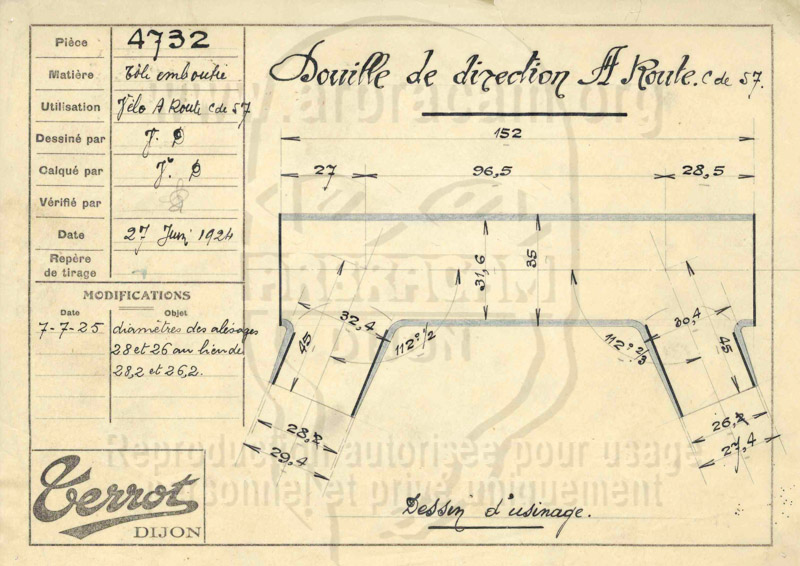 Pièce 4732
Matière Tôle emboutie
Utilisation Vélo A Route C de 57
Dessiné par J. D
Calqué par J. D
Vérifié par
Date 27 Juin 1924
Repère
de tirage
MODIFICATIONS
Date Objet
7-7-25 diamètres des alésages
28 et 26 au lieu de
28,2 et 26,2.
Terrot
DIJON
Douille de direction A Route. C de 57.
152
27 96,5 28,5
31,6 35
32,4 30,4
45 112°1/2 112°2/3 45
28,2 26,2
29,4 27,4
Dessin d'usinage.
www.arbracam.org
ARBRACAM
DIJON
Reproduction autorisée pour usage
personnel et privé uniquement